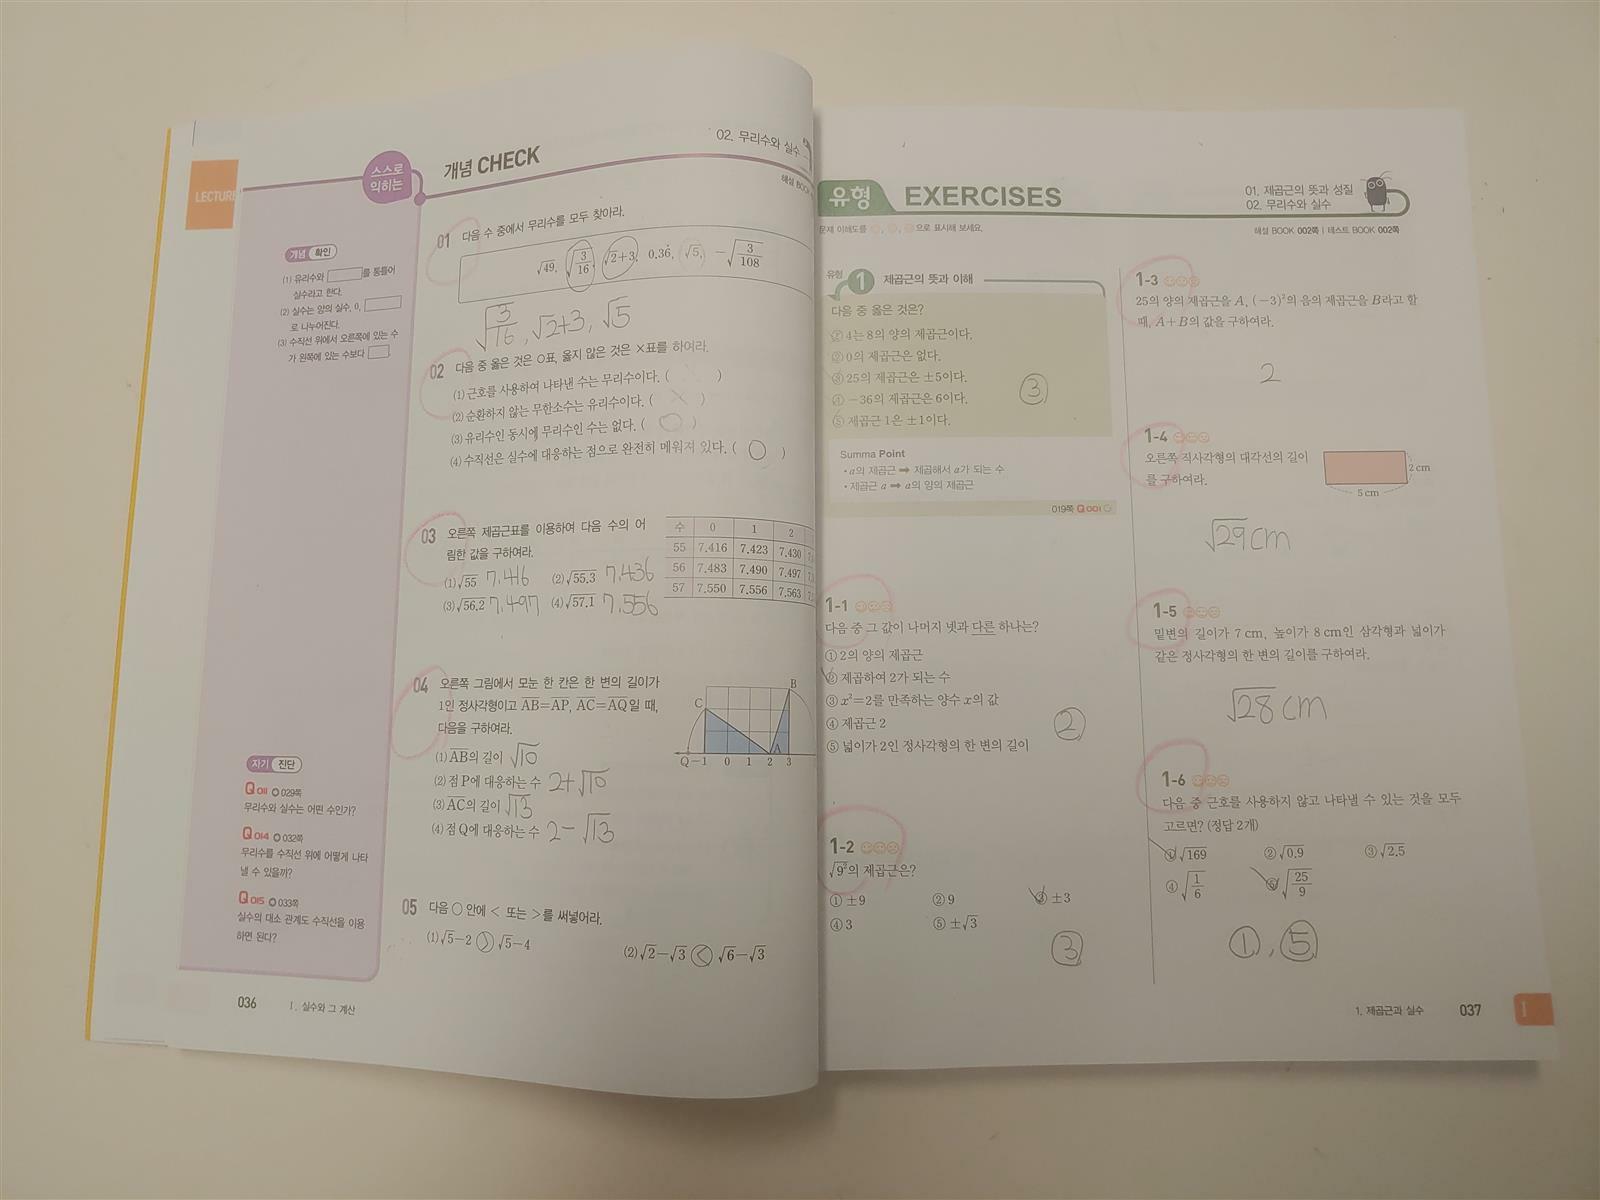 LECTURE
스스로
익히는
개념 CHECK
02. 무리수와 실수
해설 BOOK
개념 확인
(1) 유리수와 를 통틀어
실수라고 한다.
(2) 실수는 양의 실수, 0,
로 나누어진다.
(3) 수직선 위에서 오른쪽에 있는 수
가 왼쪽에 있는 수보다 .
자기 진단
Q 011 029쪽
무리수와 실수는 어떤 수인가?
Q 014 032쪽
무리수를 수직선 위에 어떻게 나타
낼 수 있을까?
Q 015 033쪽
실수의 대소 관계도 수직선을 이용
하면 된다?
01 다음 수 중에서 무리수를 모두 찾아라.
√49, √(3/16), √2+3, 0.36̇, √5, −√(3/108)
√(3/16), √2+3, √5
02 다음 중 옳은 것은 ○표, 옳지 않은 것은 ×표를 하여라.
(1) 근호를 사용하여 나타낸 수는 무리수이다. ( )
(2) 순환하지 않는 무한소수는 유리수이다. ( × )
(3) 유리수인 동시에 무리수인 수는 없다. ( ○ )
(4) 수직선은 실수에 대응하는 점으로 완전히 메워져 있다. ( ○ )
03 오른쪽 제곱근표를 이용하여 다음 수의 어
림한 값을 구하여라.
(1) √55 7.416 (2) √55.3 7.436
(3) √56.2 7.497 (4) √57.1 7.556
수 0 1 2
55 7.416 7.423 7.430
56 7.483 7.490 7.497
57 7.550 7.556 7.563
04 오른쪽 그림에서 모눈 한 칸은 한 변의 길이가
1인 정사각형이고 AB=AP, AC=AQ일 때,
다음을 구하여라.
(1) AB의 길이 √10
(2) 점 P에 대응하는 수 2+√10
(3) AC의 길이 √13
(4) 점 Q에 대응하는 수 2−√13
B
C
A
Q −1 0 1 2 3
05 다음 ○ 안에 < 또는 >를 써넣어라.
(1) √5−2 > √5−4
(2) √2−√3 < √6−√3
036 Ⅰ. 실수와 그 계산
유형 EXERCISES
01. 제곱근의 뜻과 성질
02. 무리수와 실수
문제 이해도를 으로 표시해 보세요.
해설 BOOK 002쪽 | 테스트 BOOK 002쪽
유형 1 제곱근의 뜻과 이해
다음 중 옳은 것은?
① 4는 8의 양의 제곱근이다.
② 0의 제곱근은 없다.
③ 25의 제곱근은 ±5이다.
④ −36의 제곱근은 6이다.
⑤ 제곱근 1은 ±1이다.
③
Summa Point
• a의 제곱근 ➡ 제곱해서 a가 되는 수
• 제곱근 a ➡ a의 양의 제곱근
019쪽 Q 001
1-1
다음 중 그 값이 나머지 넷과 다른 하나는?
① 2의 양의 제곱근
② 제곱하여 2가 되는 수
③ x²=2를 만족하는 양수 x의 값
④ 제곱근 2
⑤ 넓이가 2인 정사각형의 한 변의 길이
②
1-2
√9²의 제곱근은?
① ±9 ② 9 ③ ±3
④ 3 ⑤ ±√3
③
1-3
25의 양의 제곱근을 A, (−3)²의 음의 제곱근을 B라고 할
때, A+B의 값을 구하여라.
2
1-4
오른쪽 직사각형의 대각선의 길이
를 구하여라.
2 cm
5 cm
√29 cm
1-5
밑변의 길이가 7 cm, 높이가 8 cm인 삼각형과 넓이가
같은 정사각형의 한 변의 길이를 구하여라.
√28 cm
1-6
다음 중 근호를 사용하지 않고 나타낼 수 있는 것을 모두
고르면? (정답 2개)
① √169 ② √0.9 ③ √2.5
④ √(1/6) ⑤ √(25/9)
①, ⑤
1. 제곱근과 실수 037
Ⅰ